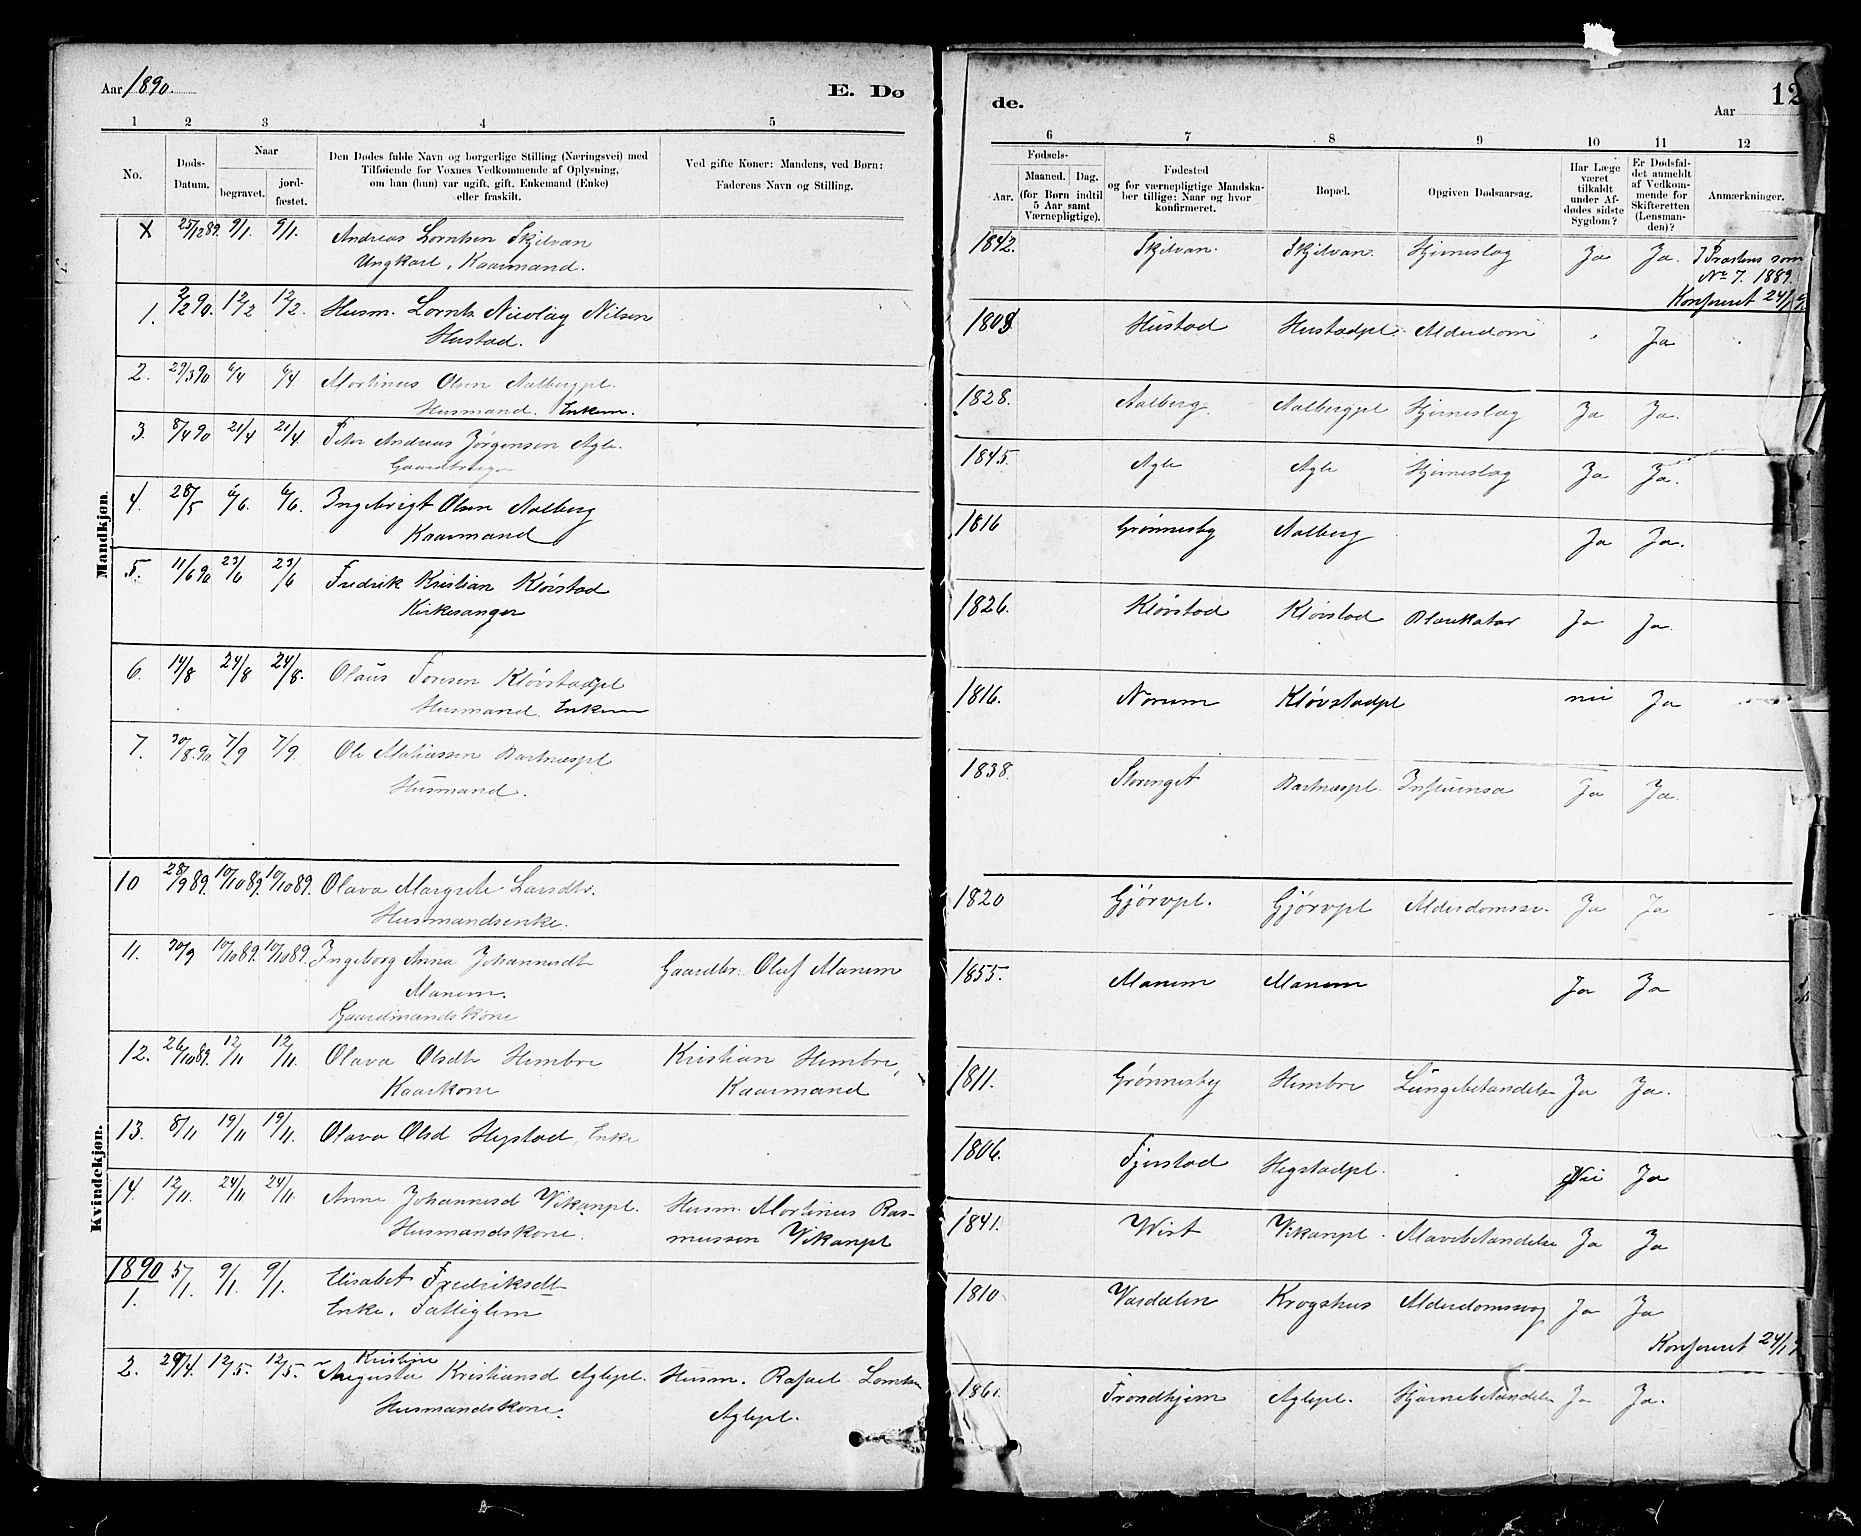 Aar 1890.
E. Dø
de.
Aar
12
1 2 3 4 5
6 7 8 9 10 11 12
No.
Døds-Datum.
Naar
begravet.
jord-fæstet.
Den Dødes fulde Navn og borgerlige Stilling (Næringsvei) med
Tilføiende for Voxnes Vedkommende af Oplysning,
om han (hun) var ugift, gift, Enkemand (Enke)
eller fraskilt.
Ved gifte Koner: Mandens, ved Børn:
Faderens Navn og Stilling.
Fødsels-
Aar.
Maaned. Dag.
(for Børn indtil
5 Aar samt
Værnepligtige).
Fødested
og for værnepligtige Mandska-
ber tillige: Naar og hvor
konfirmeret.
Bopæl.
Opgiven Dødsaarsag.
Har Læge
været
tilkaldt
under Af-
dødes sidste
Sygdom?
Er Dødsfal-
det anmeldt
af Vedkom-
mende for
Skifteretten
(Lensman-
den)?
Anmærkninger.
Mandkjøn.
X 25/12 89. 9/1. 9/1. Andreas Lorntsen Skjelvan 1842. Skjelvan. Skjelvan. Hjerneslag Ja Ja.
Ungkarl, Kaarmand.
No 7. 1889.
Konfereret 24/1
1. 2/2 90. 12/2 12/2. Husm. Lornts Nicolay Nilsen 1808 Hustad Hustadpl. Alderdom Ja
Hustad.
2. 29/3 90 6/4 6/4 Mortinus Olsen Aalbergpl. 1828. Aalberg. Aalbergpl Hjerneslag Ja Ja.
Husmand. Enkem.
3. 8/4 90 21/4 21/4 Peter Andreas Jørgensen Agle. 1845. Agle Agle Hjerneslag Ja Ja.
Gaardbruger
4. 28/5 6/6. 6/6. Ingebrigt Olsen Aalberg 1816 Grønnesby Aalberg Ja Ja.
Kaarmand
5. 11/6 90 23/6 23/6 Fredrik Kristian Kløvstad 1826. Kløvstad Kløvstad Blærekatar Ja Ja.
Kirkesanger
6. 14/8 24/8 24/8. Olaus Toresen Kløvstadpl 1816. Norum Kløvstadpl nei Ja
Husmand. Enkem
7. 30/8 90 7/9 7/9. Ole Mathiassen Bartnespl 1838. Storenget Bartnespl. Influensa Ja Ja.
Husmand.
Kvindekjøn.
10 28/9 89. 10/10 89. 10/10 89. Olava Margrete Larsdtr. 1820 Gjørvpl. Gjørvpl Alderdomssv. Ja Ja
Husmandsenke.
11. 30/9 10/10 89. 10/10 89. Ingeborg Anna Johannesdt Gaardbr. Oluf Manem 1855. Manem Manem Ja Ja
Manem.
Gaardmandskone
12. 26/10 89. 12/11 12/11. Olava Olsdt Hembre Kristian Hembre, 1811. Grønnesby Hembre Lungebetændelse Ja Ja.
Kaarkone Kaarmand
13. 8/11 19/11 19/11. Olava Olsd Hegstad, Enke 1806. Fjerstad Hegstadpl. Nei Ja
14. 12/11. 24/11 24/11. Anne Johannesd Vikanpl. Husm. Mortinus Ras- 1841. Wist Vikanpl. Mavebetændelse Ja Ja
Husmandskone. mussen Vikanpl
1890
1. 5/1. 9/1. 9/1. Elisabet Fredriksdt 1810 Værdalen Krogshus Alderdomssvag Ja Ja
Enke. Fattiglem
Konfereret 24/1
Kristine
2. 29/4. 12/5. 12/5. Augusta Kristiansd Aglepl. Husm. Rafael Lorntsen 1861. Trondhjem Aglepl. Hjernebetændelse Ja Ja.
Husmandskone. Aglepl.